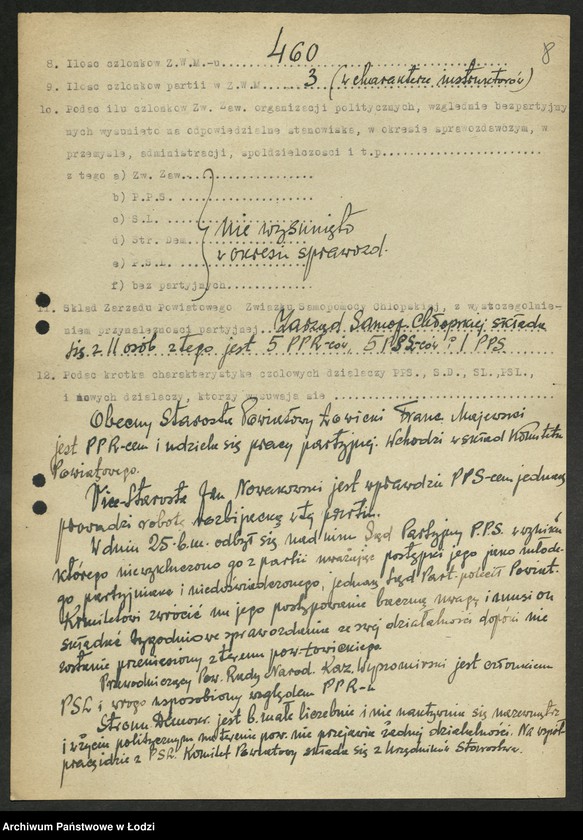 8
8. Ilosc członkow Z.W.M.-u........460
9. Ilosc członkow partii w Z.W.M......3 (w charakterze instruktorów)
1o. Podac ilu członkow Zw. Zaw. organizacji politycznych, względnie bezpartyjny
nych wysunięto na odpowiedzialne stanowiska, w okresie sprawozdawczym, w
przemysle, administracji, spoldzielczosci i t.p.
z tego a) Zw. Zaw.
b) P.P.S.
c) S.L.
d) Str. Dem.
e) P.S.L.
f) bez partyjnych
Nie wysunięto
w okresie sprawozd.
11. Skład Zarządu Powiatowego Związku Samopomocy Chłopskiej, z wyszczególnie-
niem przynależnosci partyjnej. Zarząd Samop. Chłopskiej składa
się z 11 osób z tego jest 5 PPR-ców, 5 PSL-ców i 1 PPS
12. Podac krotka charakterystykę czolowych działaczy PPS., S.D., SL.,PSL.,
i nowych działaczy, ktorzy wysuwają się
Obecny Starosta Powiatowy Łowicki Franc. Majewski
jest PPR-cem i udziela się pracy partyjnej. Wchodzi w skład Komitetu
Powiatowego.
Vice-Starosta Jan Nowakowski jest wprawdzie PPS-cem jednak
prowadzi robotę rozbijacką w tej partii.
W dniu 25-b.m. odbył się nad nim Sąd Partyjny P.P.S. w wyniku
którego nie wykluczono go z partii uważając postępki jego jako młode-
go partyjniaka i niedoświadczonego, jednak Sąd Part. polecił Powiat.
Komitetowi zwrócić na jego postępowanie baczną uwagę i musi on
składać tygodniowe sprawozdania ze swej działalności dopóki nie
zostanie przeniesiony z terenu pow. Łowickiego
Przewodniczący Pow. Rady Narod. Kaz. Wyszomirski jest członkiem
PSL i wrogo usposobiony względem PPR-u
Stronn. Demokr. jest b. małe liczebnie i nie uaktywnia się nazewnątrz
i w życiu politycznym na terenie pow. nie przejawia żadnej działalności. Na współ-
pracę idzie z PSL. Komitet Powiatowy składa się z Urzędników Starostwa.
Archiwum Państwowe w Łodzi
szukajwarchiwach.pl